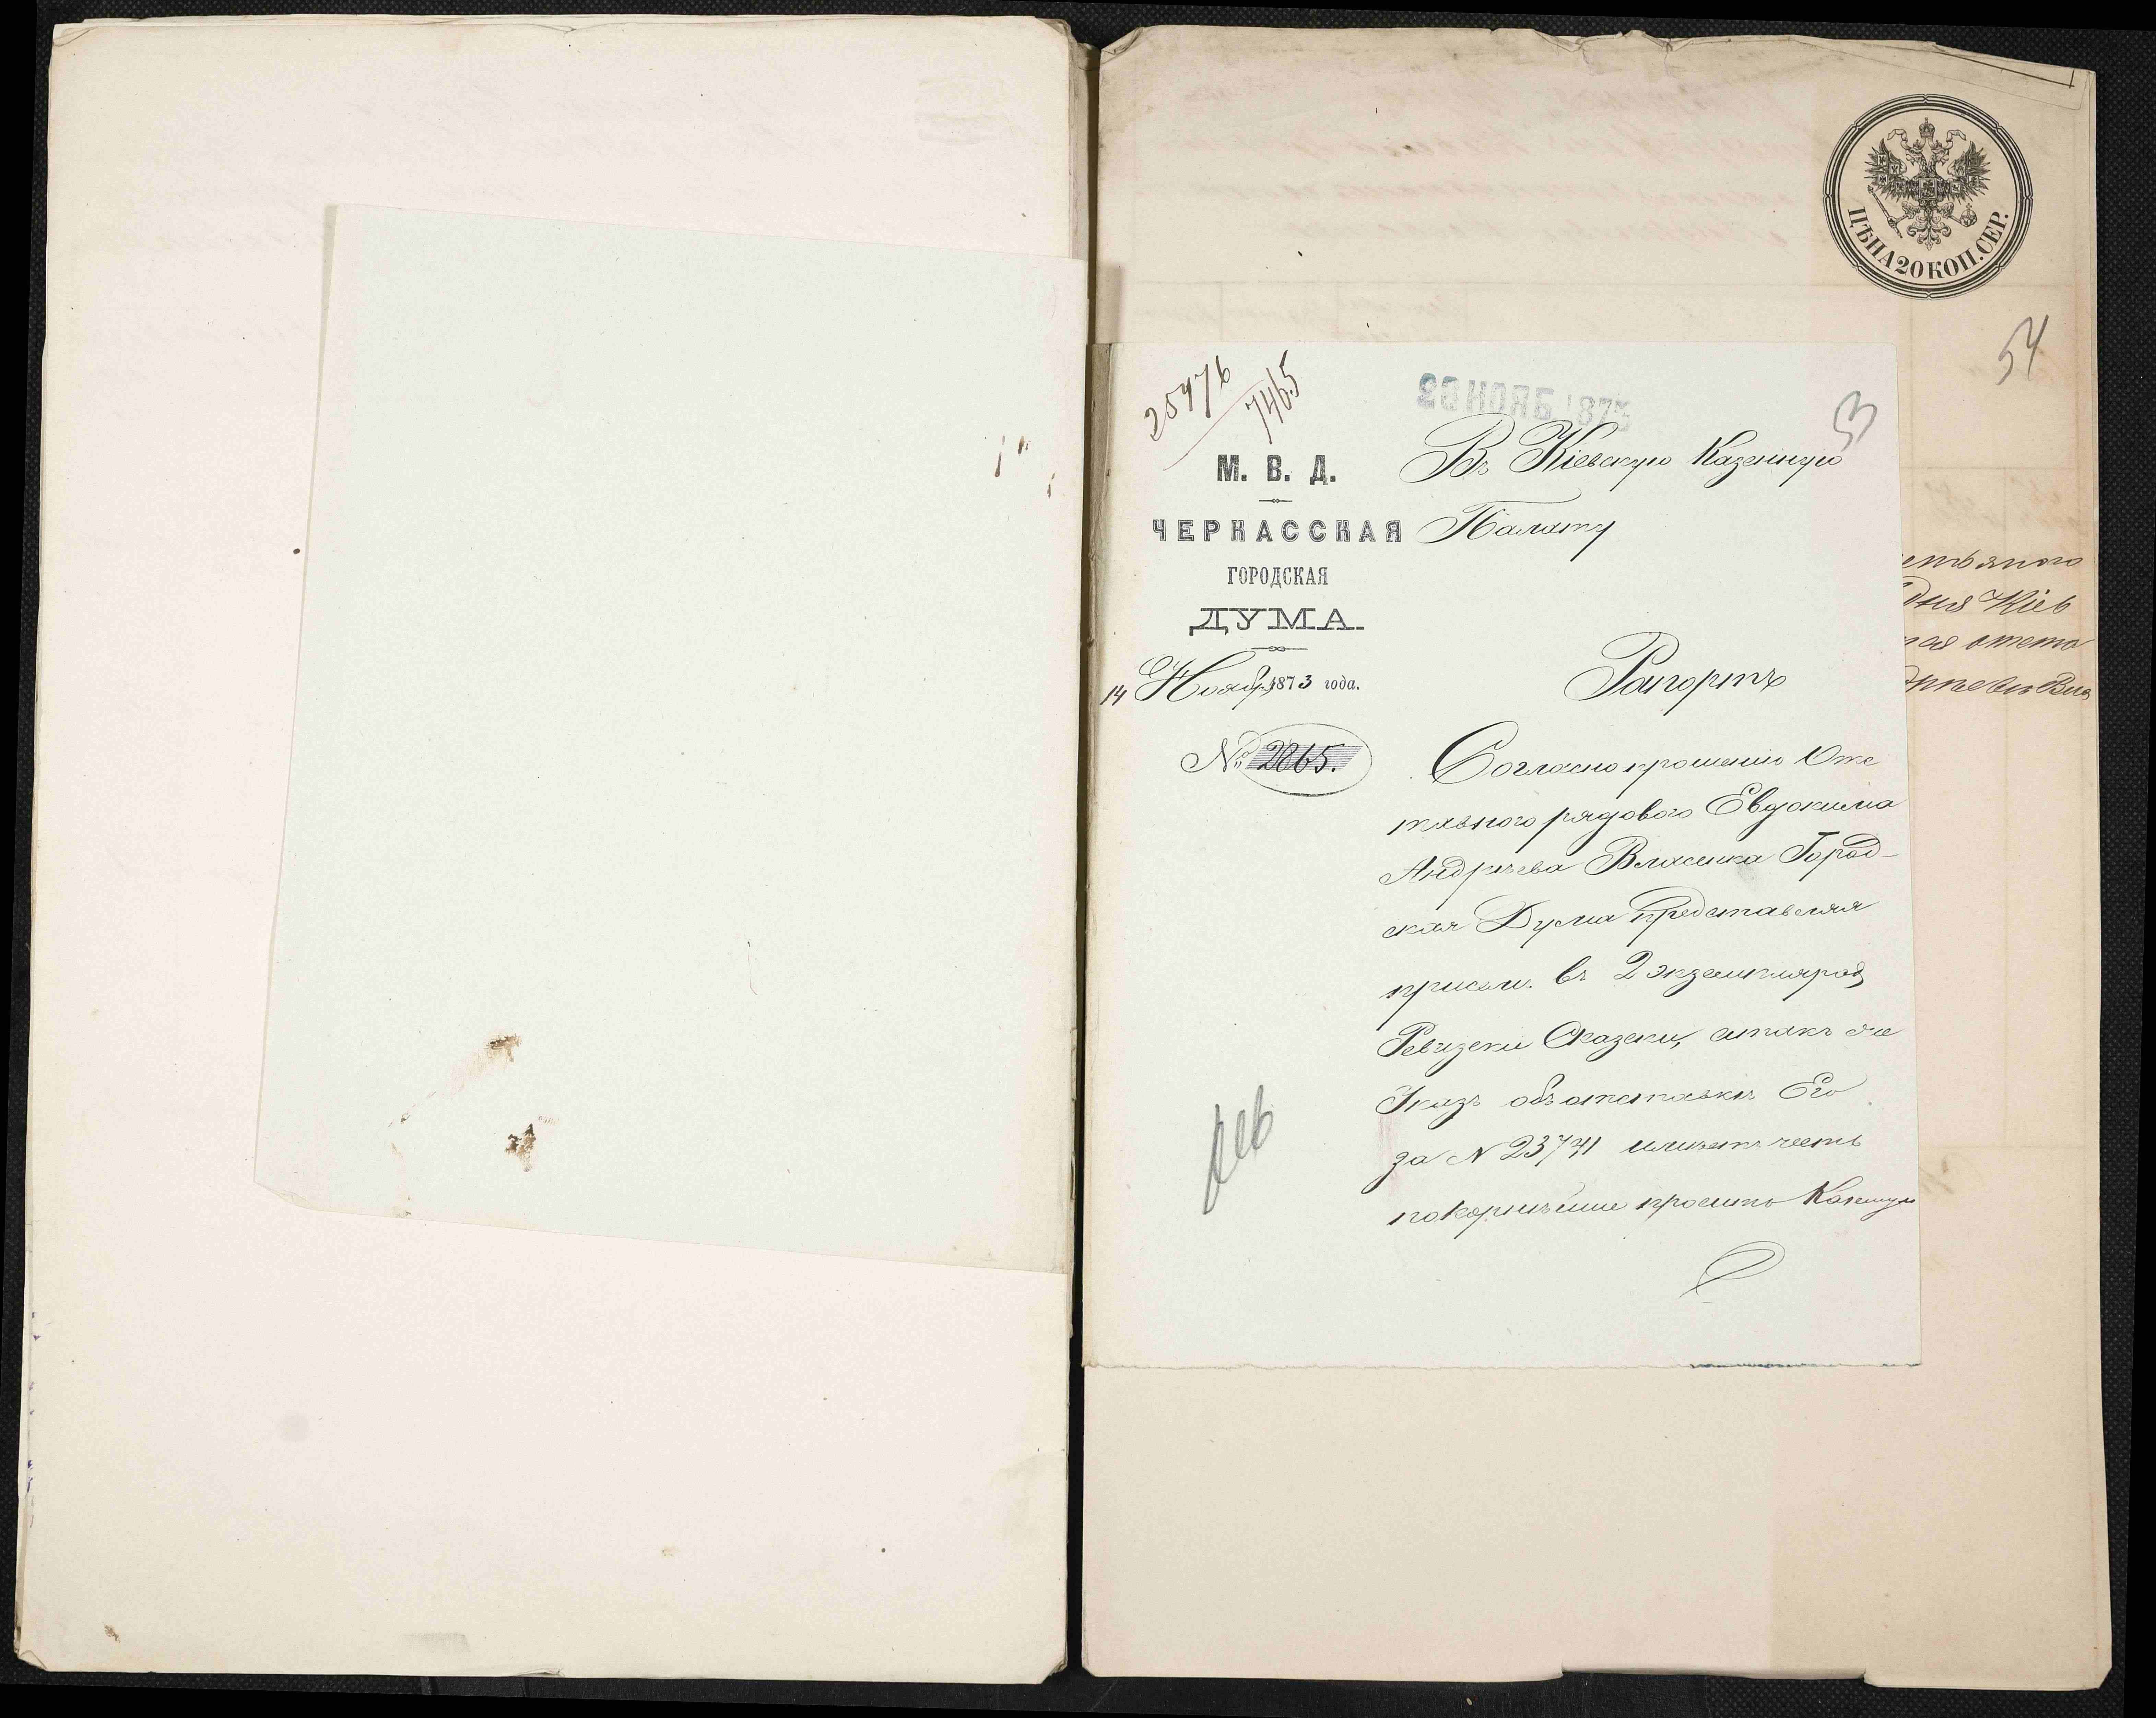 ЦѢНА 20 КОП. СЕР.
54
25476
7465
20 НОЯБ 1873
53
М. В. Д.
ЧЕРКАССКАЯ
ГОРОДСКАЯ
ДУМА.
14 Ноябр 1873 года.
№ 2865.
Въ Кіевскую Казенную
Палату
Рапортъ
Согласно прошенію Отс
тавного рядового Евдокима
Андрѣева Власенка Город-
ская Дума представляя
присемъ въ 2 экземплярахъ
Ревизски Сказски, атакъ же
Указъ объ отставкѣ Его
за № 23741 имѣетъ честь
покорнѣйше просить Казенную
дня Кіев